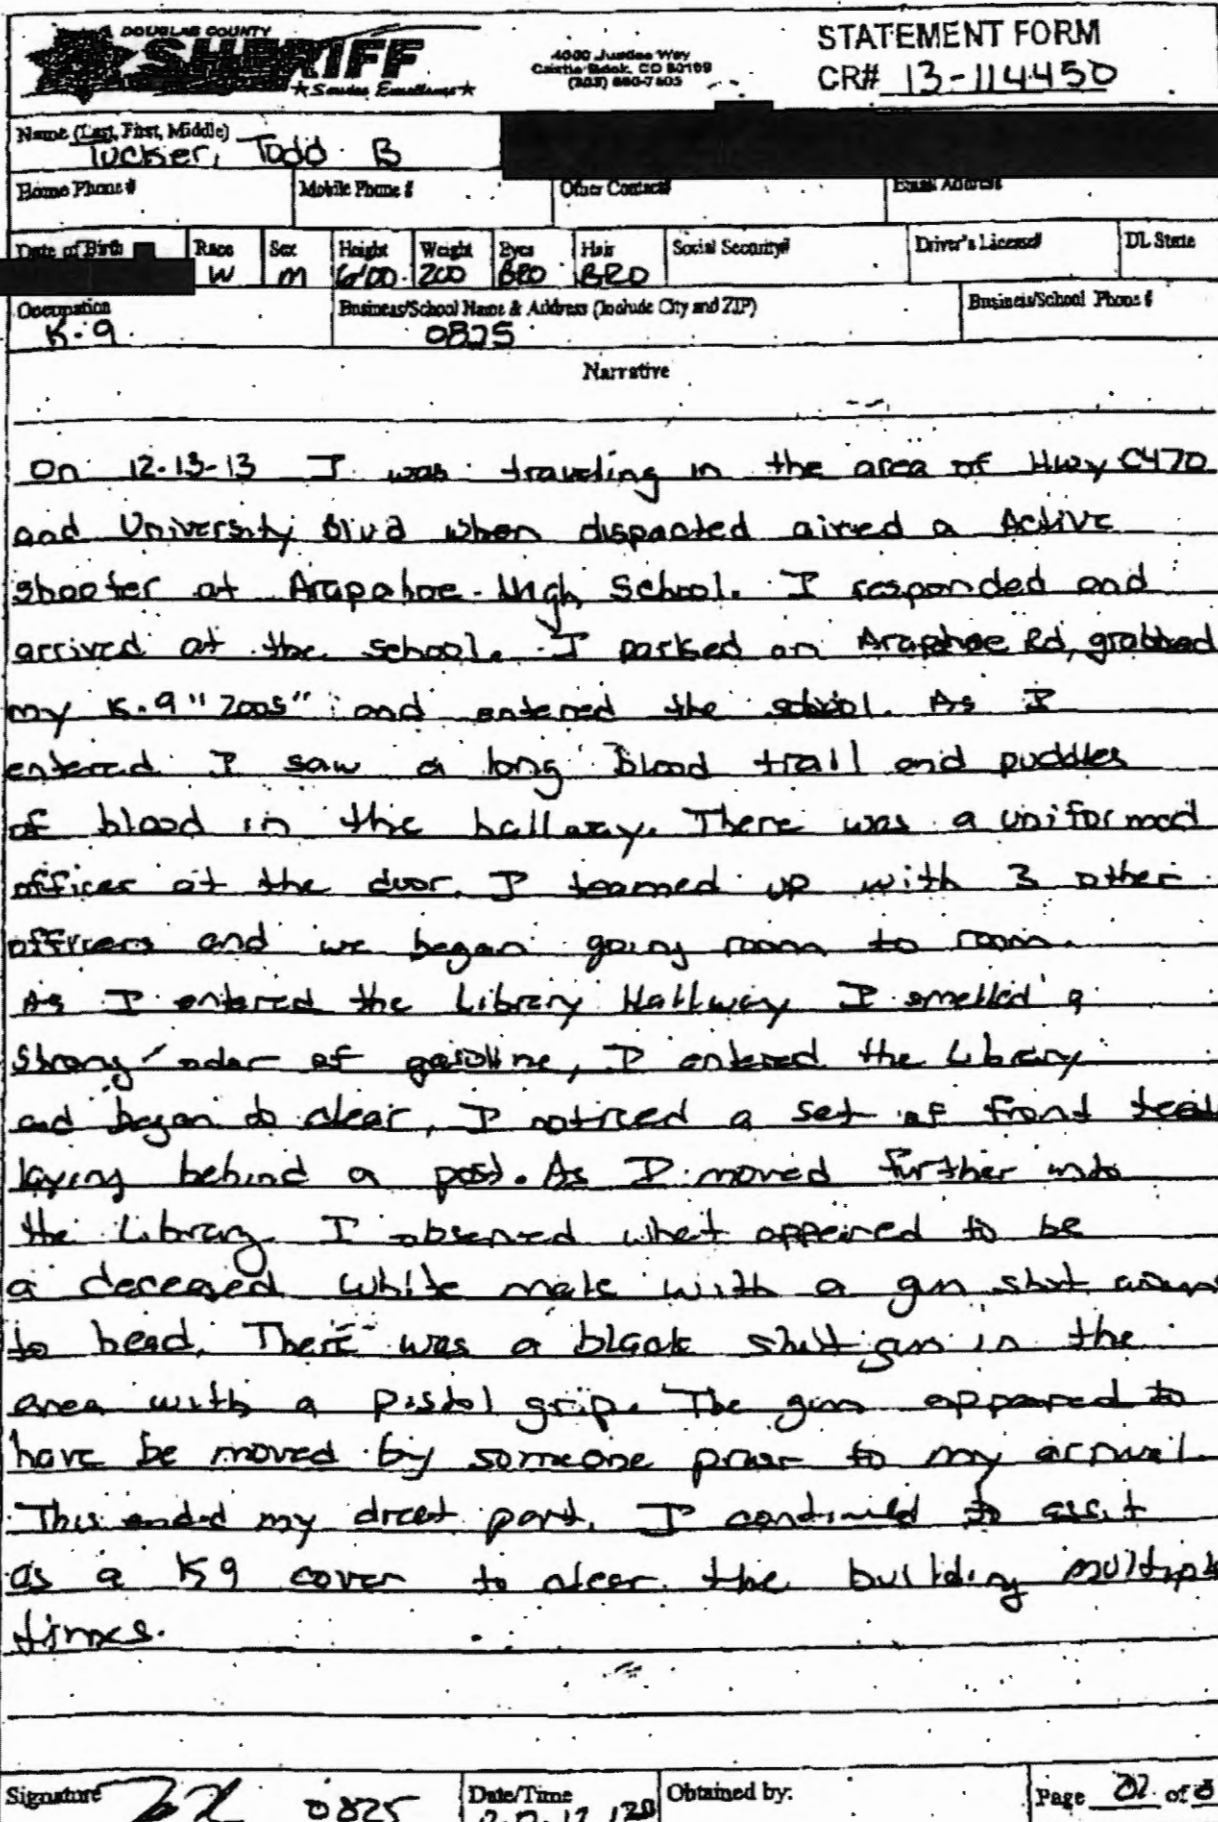 DOUGLAS COUNTY
SHERIFF
★ Service Excellence ★
4000 Justice Way
Castle Rock, CO 80109
(303) 660-7505
STATEMENT FORM
CR# 13-114450
Name (Last, First, Middle)
Tucker, Todd B
Home Phone #
Mobile Phone #
Other Contact#
Email Address
Date of Birth
Race
Sex
Height
Weight
Eyes
Hair
Social Security#
Driver's License#
DL State
W
M
6'00
200
BRO
BRO
Occupation
Business/School Name & Address (Include City and ZIP)
Business/School Phone #
K-9
0825
Narrative
On 12-13-13 I was traveling in the area of Hwy C470
and University Blvd when dispacted aired a Active
shooter at Arapahoe High School. I responded and
arrived at the school. I parked on Araphoe Rd, grabbed
my K-9 "Zoos" and entered the school. As I
entered I saw a long Blood trail and puddles
of blood in the hallway. There was a uniformed
officer at the door. I teamed up with 3 other
officers and we began going room to room.
As I entered the Library Hallway I smelled a
strong odor of gasoline, I entered the Library
and began to clear, I noticed a set of front
laying behind a post. As I moved further into
the Library I observed what appeared to be
a deceased white male with a gun shot
to head. There was a black shot gun in the
area with a pistol grip. The gun appeared to
have be moved by someone prior to my arrival.
This ended my direct part. I continued to assit
as a K9 cover to clear the building multiple
times.
Signature
0825
Date/Time
Obtained by:
Page of